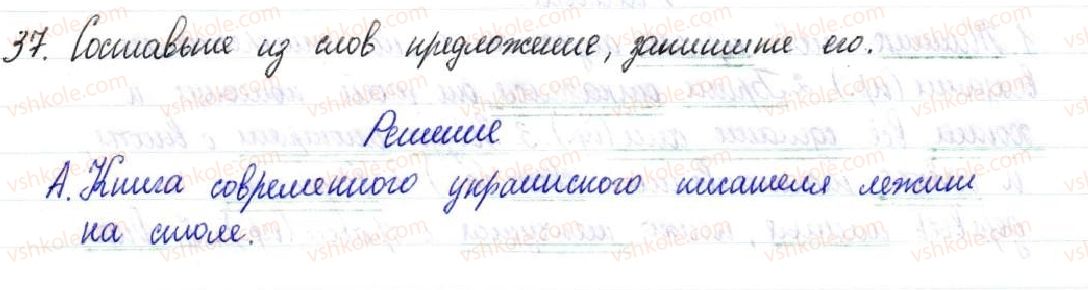 37. Составьте из слов предложение, запишите его.
Решение
А. Книга современного украинского писателя лежит
на столе.